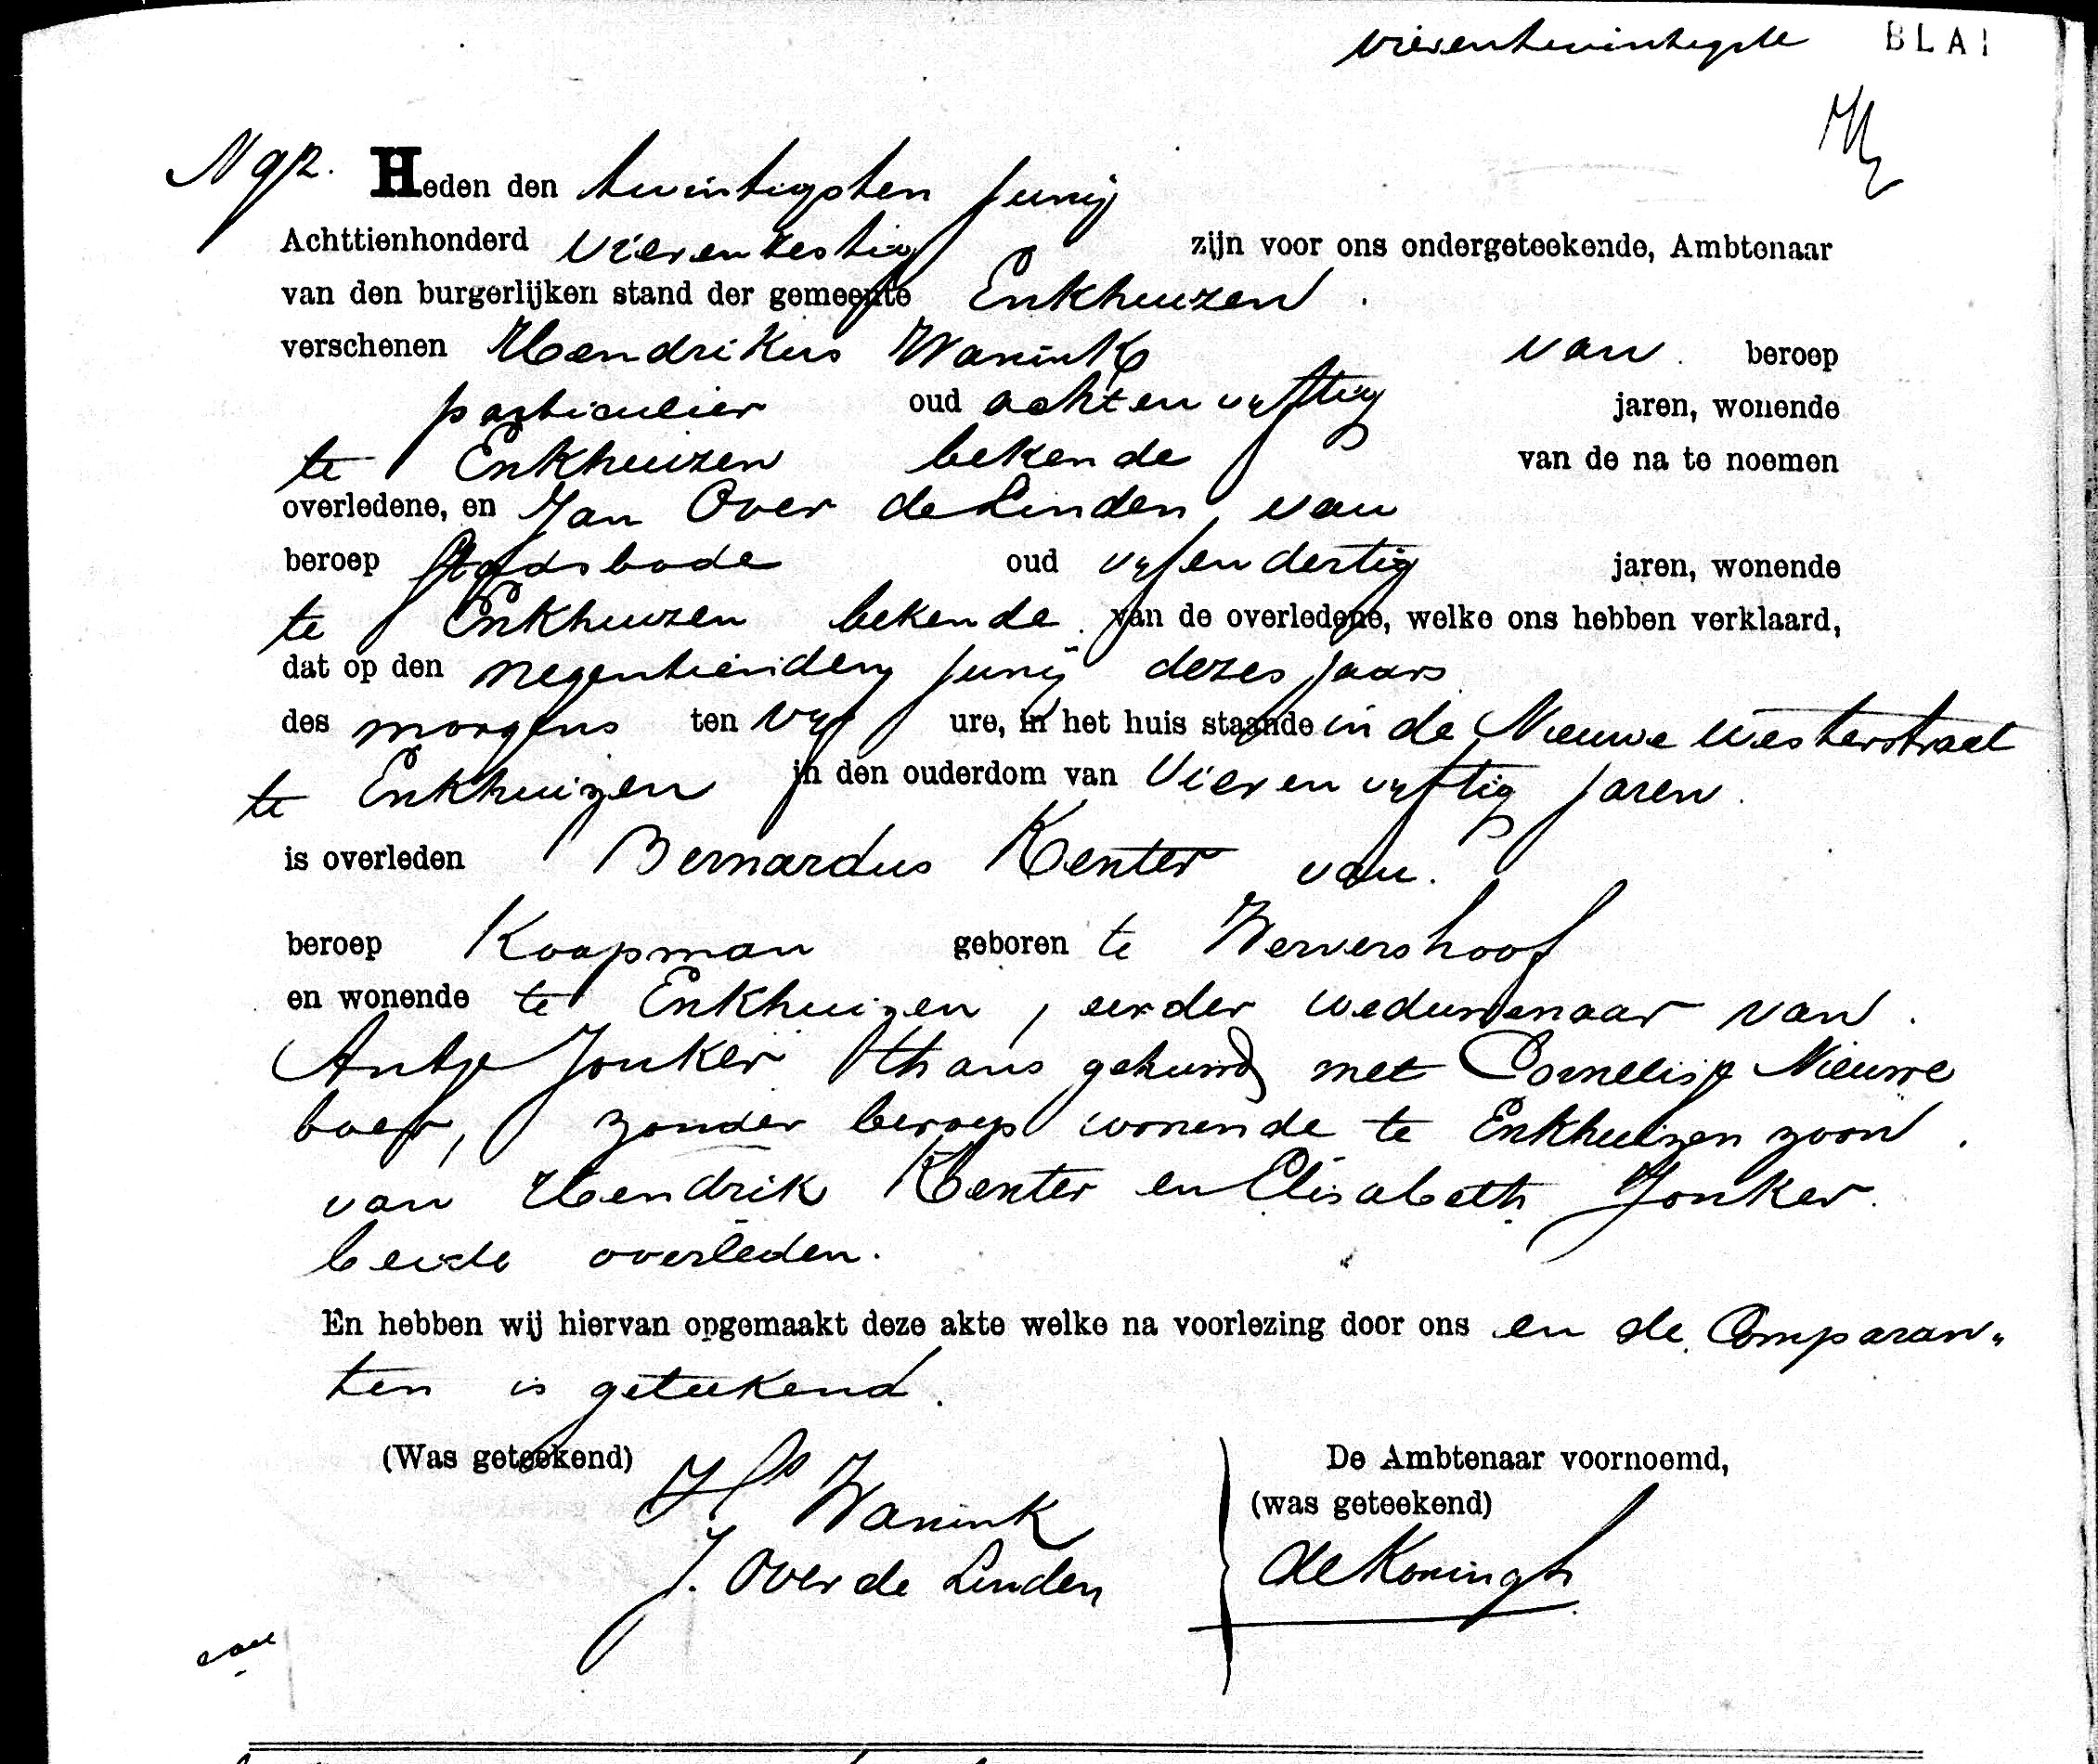 vierentwintigste BLA
N 92. Heden den twintigsten Junij
Achttienhonderd vierenzestig zijn voor ons ondergeteekende, Ambtenaar
van den burgerlijken stand der gemeente Enkhuizen.
verschenen Hendrikus Wanink van beroep
particulier oud achtenvyftig jaren, wonende
te Enkhuizen bekende van de na te noemen
overledene, en Jan Over de Linden, van
beroep Stadsbode oud vyfendertig jaren, wonende
te Enkhuizen bekende van de overledene, welke ons hebben verklaard,
dat op den negentienden Junij dezes jaars
des morgens ten vyf ure, in het huis staande in de Nieuwe westerstraat
te Enkhuizen in den ouderdom van vierenvyftig jaren.
is overleden Bernardus Kenter van.
beroep Koopman geboren te Wervershoof
en wonende te Enkhuizen, eerder weduwenaar van.
Antje Jonker thans gehuwd met Cornelisje Nieuwe
boer, zonder beroep wonende te Enkhuizen zoon.
van Hendrik Kenter en Elisabeth Jonker.
beide overleden.
En hebben wij hiervan opgemaakt deze akte welke na voorlezing door ons en de Comparan„
ten is geteekend.
(Was geteekend) Hs Wanink De Ambtenaar voornoemd,
(was geteekend)
J. Over de Linden de Koningh